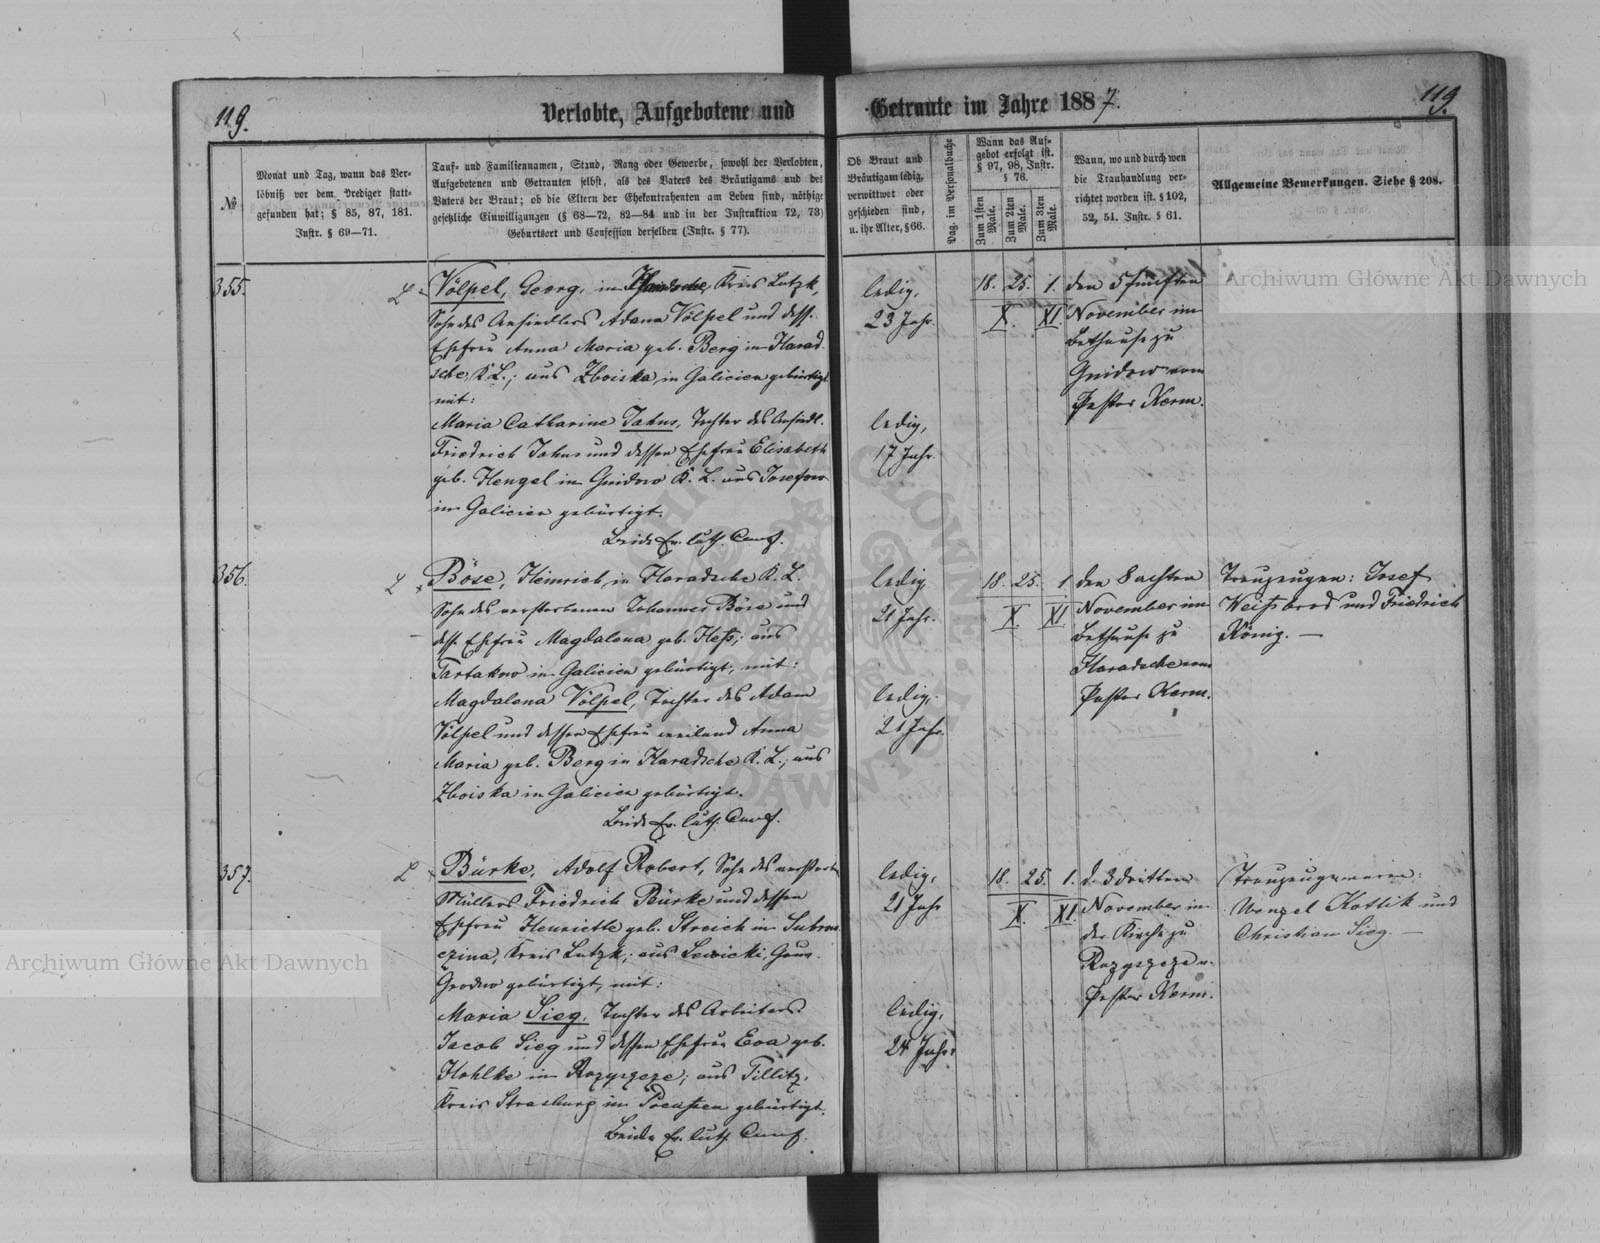 119.
Verlobte, Aufgebotene und
Getraute im Jahre 1887.
119.
№
Monat und Tag, wann das Ver-
löbniß vor dem Prediger statt-
gefunden hat; § 85, 87, 181.
Instr. § 69—71.
Tauf- und Familiennamen, Stand, Rang oder Gewerbe, sowohl der Verlobten,
Aufgebotenen und Getrauten selbst, als des Vaters des Bräutigams und des
Vaters der Braut; ob die Eltern der Ehekontrahenten am Leben sind, nöthige
gesetzliche Einwilligungen (§ 68—72, 82—84 und in der Instruktion 72, 73)
Geburtsort und Confession derselben (Instr. § 77).
Ob Braut und
Bräutigam ledig,
verwittwet oder
geschieden sind,
u. ihr Alter, § 66.
Pag. im Personalbuche
Wann das Auf-
gebot erfolgt ist.
§ 97, 98, Instr.
§ 76.
Zum 1sten Male.
Zum 2ten Male.
Zum 3ten Male.
Wann, wo und durch wen
die Trauhandlung ver-
richtet worden ist. § 102,
52, 51. Instr. § 61.
Allgemeine Bemerkungen. Siehe § 208.
355.
L
Völpel, Georg, in Haradsche, Kreis Lutzk,
Sohn des Ansiedlers Adam Völpel und dess.
Ehefrau Anna Maria geb. Berg in Harad-
sche, K. L.; aus Zboiska in Galicien gebürtigt
mit:
Maria Catharine Jahns, Tochter des Ansiedl.
Friedrich Jahns und dessen Ehefrau Elisabeth
geb. Hengel in Gnidow K. L. aus Josefow
in Galicien gebürtigt.
Beide Ev. luth. Conf.
ledig,
23 Jahr.
ledig,
17 Jahr.
18. 25. 1.
X. XI.
den 5 fünften
November im
Bethause zu
Gnidow vom
Pastor Kerm.
356.
L
Böse, Heinrich, in Haradsche K. L.
Sohn des verstorbenen Johannes Böse und
dess. Ehefrau Magdalena geb. Heß; aus
Tartakow in Galicien gebürtigt, mit:
Magdalena Völpel, Tochter des Adam
Völpel und dessen Ehefrau weiland Anna
Maria geb. Berg in Haradsche K. L.; aus
Zboiska in Galicien gebürtigt.
Beide Ev. luth. Conf.
ledig
21 Jahr.
ledig,
21 Jahr.
18. 25. 1
X. XI
den 8 achten
November im
Bethause zu
Haradsche vom
Pastor Kerm.
Trauzeugen: Josef
Weißbrod und Friedrich
König. —
357.
L
Bürke, Adolf Robert, Sohn des verstorb.
Müllers Friedrich Bürke und dessen
Ehefrau Henriette geb. Streich in
Kreis Lutzk; aus Lewicki, Gouv.
Grodno gebürtigt, mit:
Maria Sieg, Tochter des Arbeiters
Jacob Sieg und dessen Ehefrau Eva geb.
Hohlke in Rozyszcze; aus Tillitz,
Kreis Strasburg in Preußen gebürtigt.
Beide Ev. luth. Conf.
ledig,
21 Jahr
ledig,
24 Jahr
18. 25. 1.
X. XI.
d. 3 dritten
November in
der Kirche zu
Rozyszcze v.
Pastor Kerm.
Trauzeugen waren:
Wenzel Kottik und
Christian Sieg. —
Archiwum Główne Akt Dawnych
Archiwum Główne Akt Dawnych